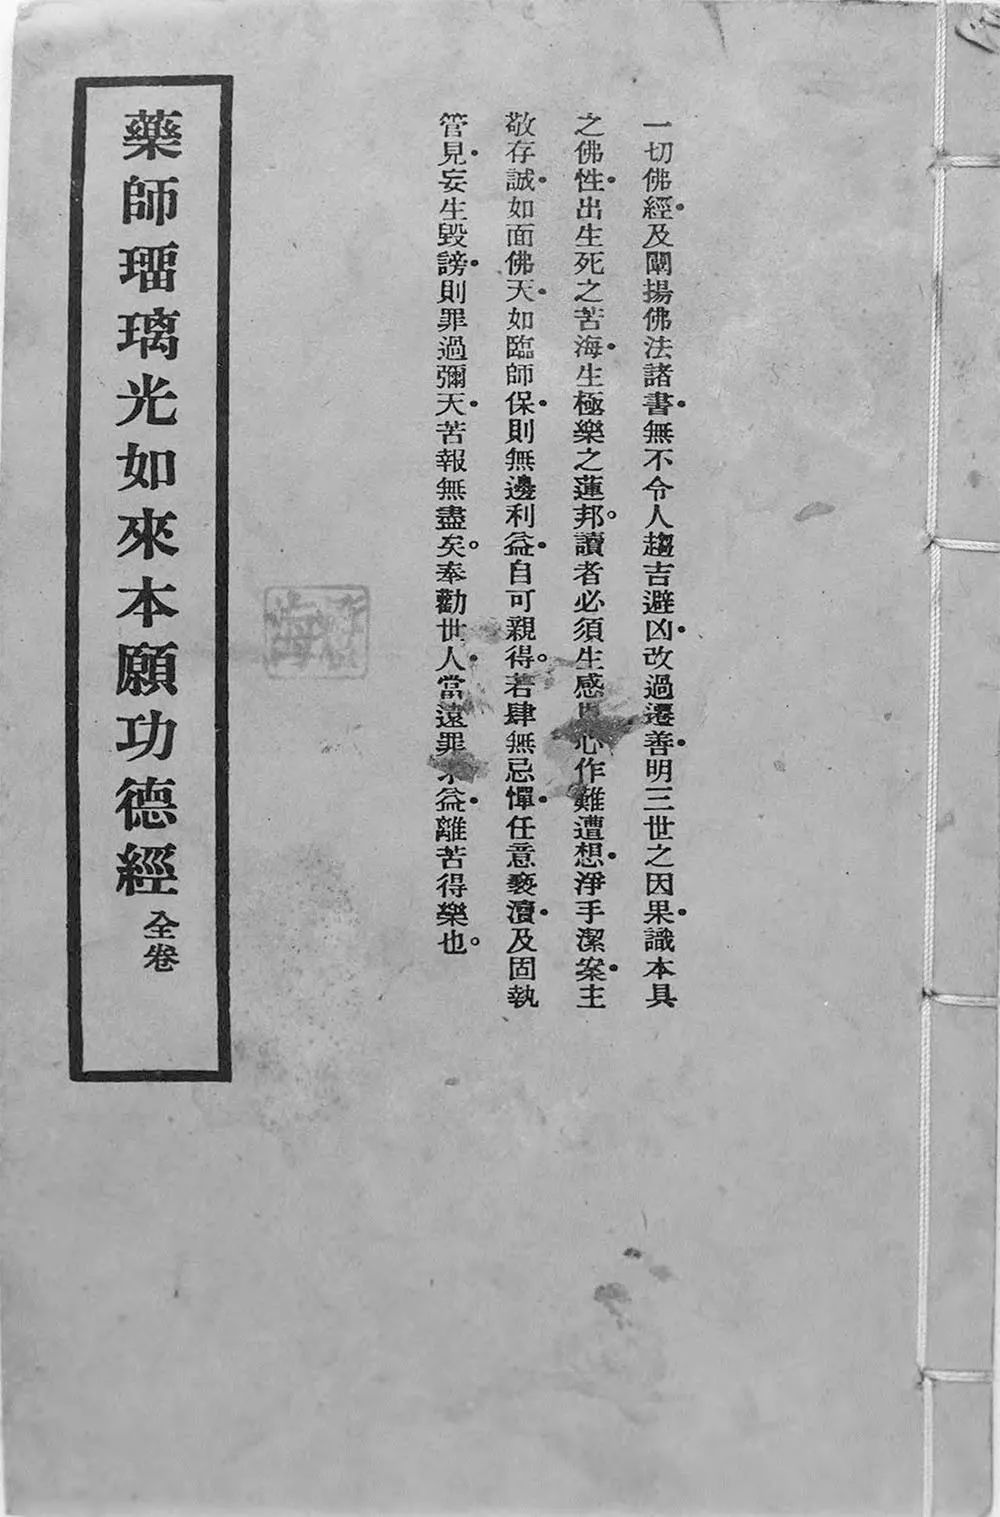 一切佛經及闡揚佛法諸書無不令人趨吉避凶改過遷善明三世之因果識本具
之佛性出生死之苦海生極樂之蓮邦。讀者必須生感心作難遭想淨手潔案主
敬存誠如面佛天如臨師保則無邊利益自可親得。若肆無忌憚任意褻瀆及固執
管見妄生毀謗則罪過彌天苦報無盡矣。奉勸世人當遠罪益離苦得樂也。
藥師瑠璃光如來本願功德經全卷